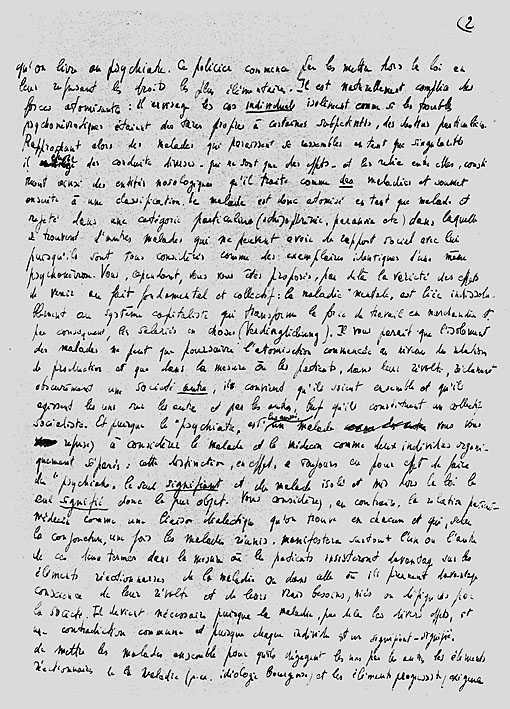 (2
qu'on livre au psychiatre. Ce policier commence par les mettre hors la loi en
leur refusant les droits les plus élémentaires. Il est naturellement complice des
forces atomisantes : il envisage les cas individuels isolément comme si les troubles
psychonévrotiques étaient des tares propres à certaines subjectivités, des destins particuliers.
Rapprochant alors des malades qui paraissent se ressembler en tant que singularités
il des conduites diverses - qui ne sont que des effets - et les relie entre elles, consti-
tuant ainsi des entités nosologiques qu'il traite comme des maladies et soumet
ensuite à une classification. Le malade est donc atomisé en tant que malade et
rejeté dans une catégorie particulière (schizophrénie, paranoïa etc) dans laquelle
se trouvent d'autres malades qui ne peuvent avoir de rapport social avec lui
puisqu'ils sont tous considérés comme des exemplaires identiques d'une même
psychonévrose. Vous, cependant, vous vous êtes proposés, par delà la variété des effets
de revenir au fait fondamental et collectif : la maladie "mentale" est liée indissolu-
blement au système capitaliste qui transforme la force de travail en marchandise et
par conséquent, les salariés en choses (Verdinglichung). Il vous paraît que l'isolement
des malades ne peut que poursuivre l'atomisation commencée au niveau des relations
de production et que dans la mesure où les patients, dans leur révolte, réclament
obscurément une société autre, il convient qu'ils soient ensemble et qu'ils
agissent les uns sur les autres et par les autres, bref qu'ils constituent un collectif
socialiste. Et puisque le "psychiatre" est lui aussi un malade vous vous
refusez à considérer le malade et le médecin comme deux individus organi-
quement séparés : cette distinction, en effet, a toujours eu pour effet de faire
du "psychiatre" le seul signifiant et du malade isolé et mis hors la loi le
seul signifié donc le pur objet. Vous considérez, au contraire, la relation patient-
médecin comme une liaison dialectique qu'on trouve en chacun et qui, selon
la conjoncture, une fois les malades réunis, manifestera surtout l'un ou l'autre
de ces deux termes dans la mesure où les patients insisteront davantage sur les
éléments réactionnaires de la maladie ou dans celle où ils prennent davantage
conscience de leur révolte et de leurs vrais besoins, niés ou défigurés par
la société. Il devient nécessaire puisque la maladie, par delà les divers effets, est
une contradiction commune et puisque chaque individu est un signifiant-signifié,
de mettre les malades ensemble pour qu'ils dégagent les uns par les autres les éléments
réactionnaires de la maladie (p.ex. idéologie bourgeoise) et les éléments progressistes (exigence